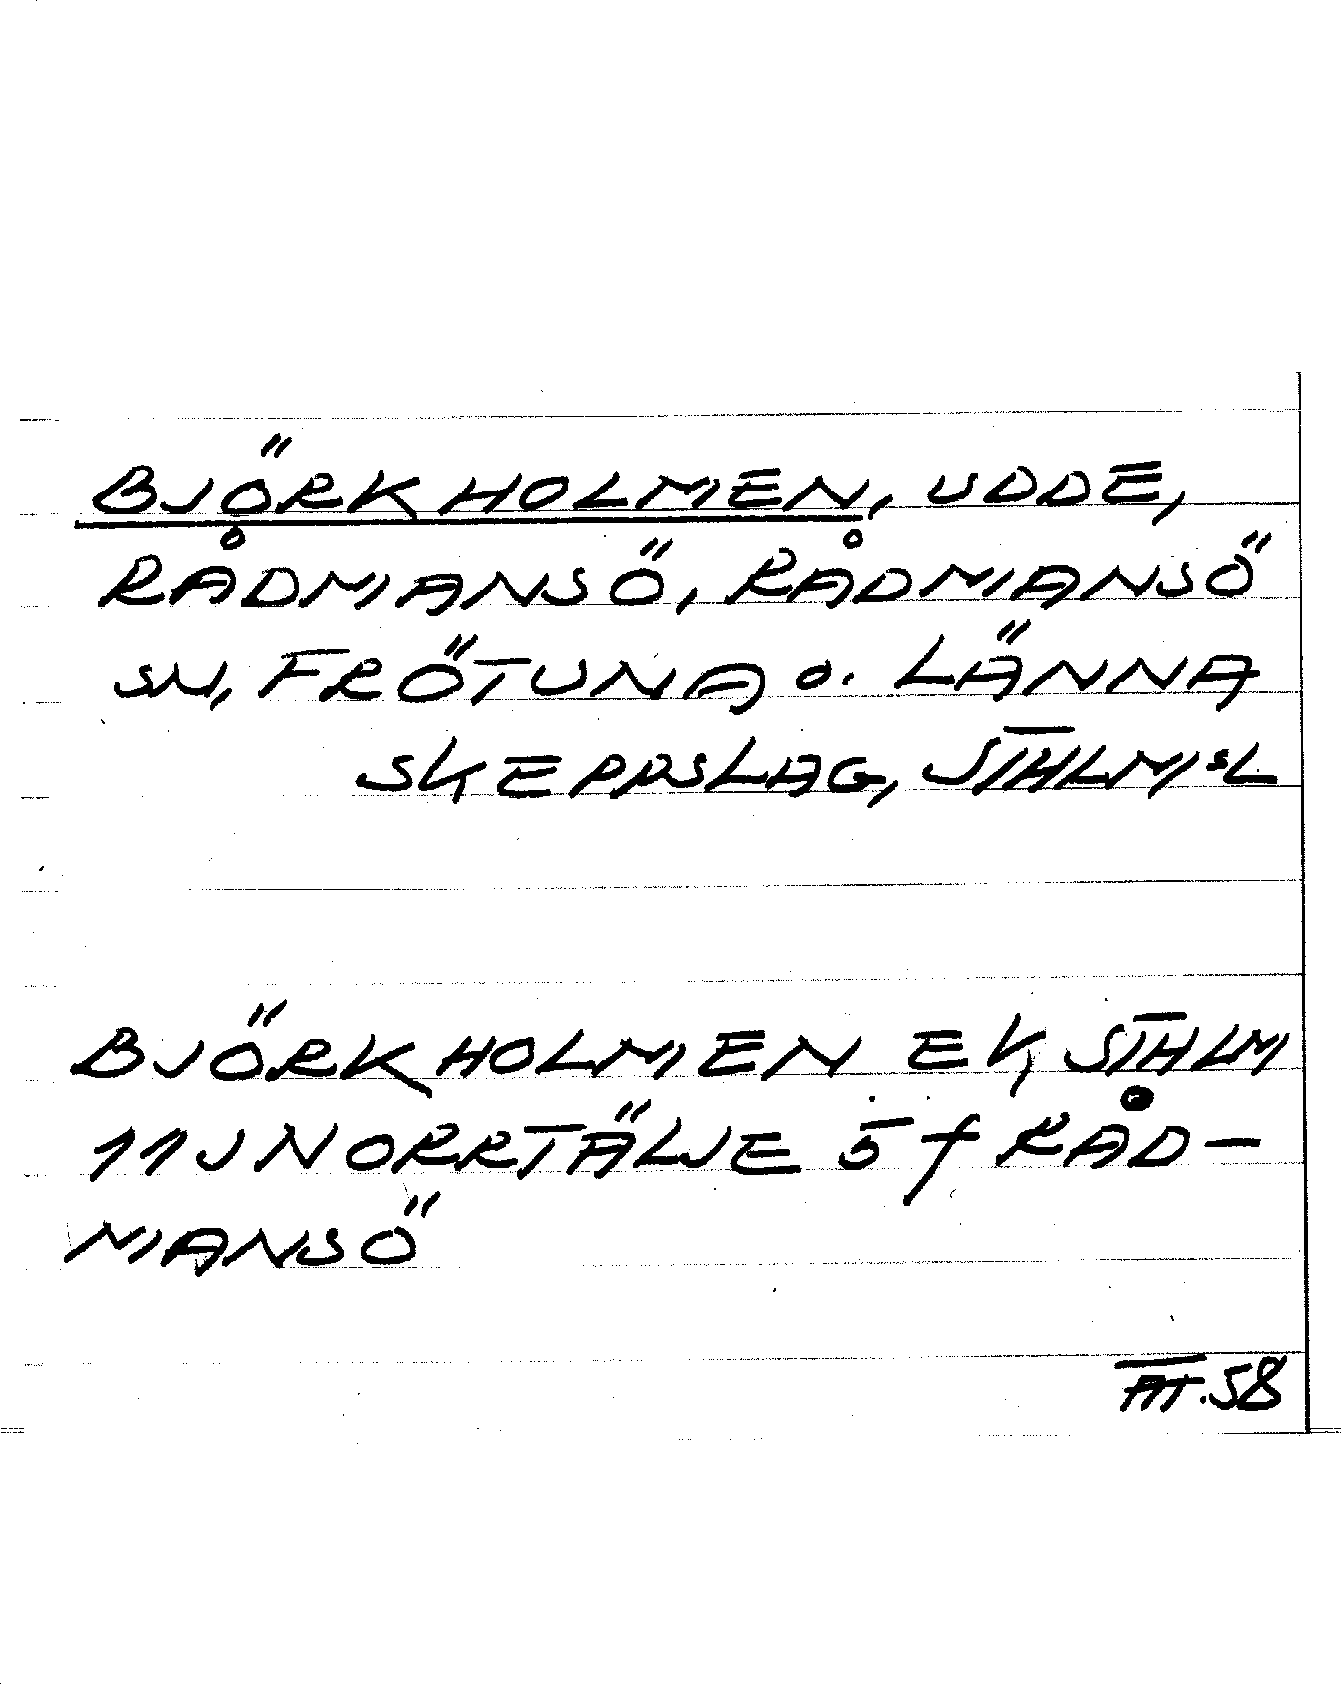 BJÖRKHOLMEN, UDDE,
RÅDMANSÖ, RÅDMANSÖ
SN, FRÖTUNA O. LÄNNA
SKEPPSLAG, STHLMSL
BJÖRKHOLMEN EK, STHLM
11J NORRTÄLJE 5f RÅD-
MANSÖ
AT.58